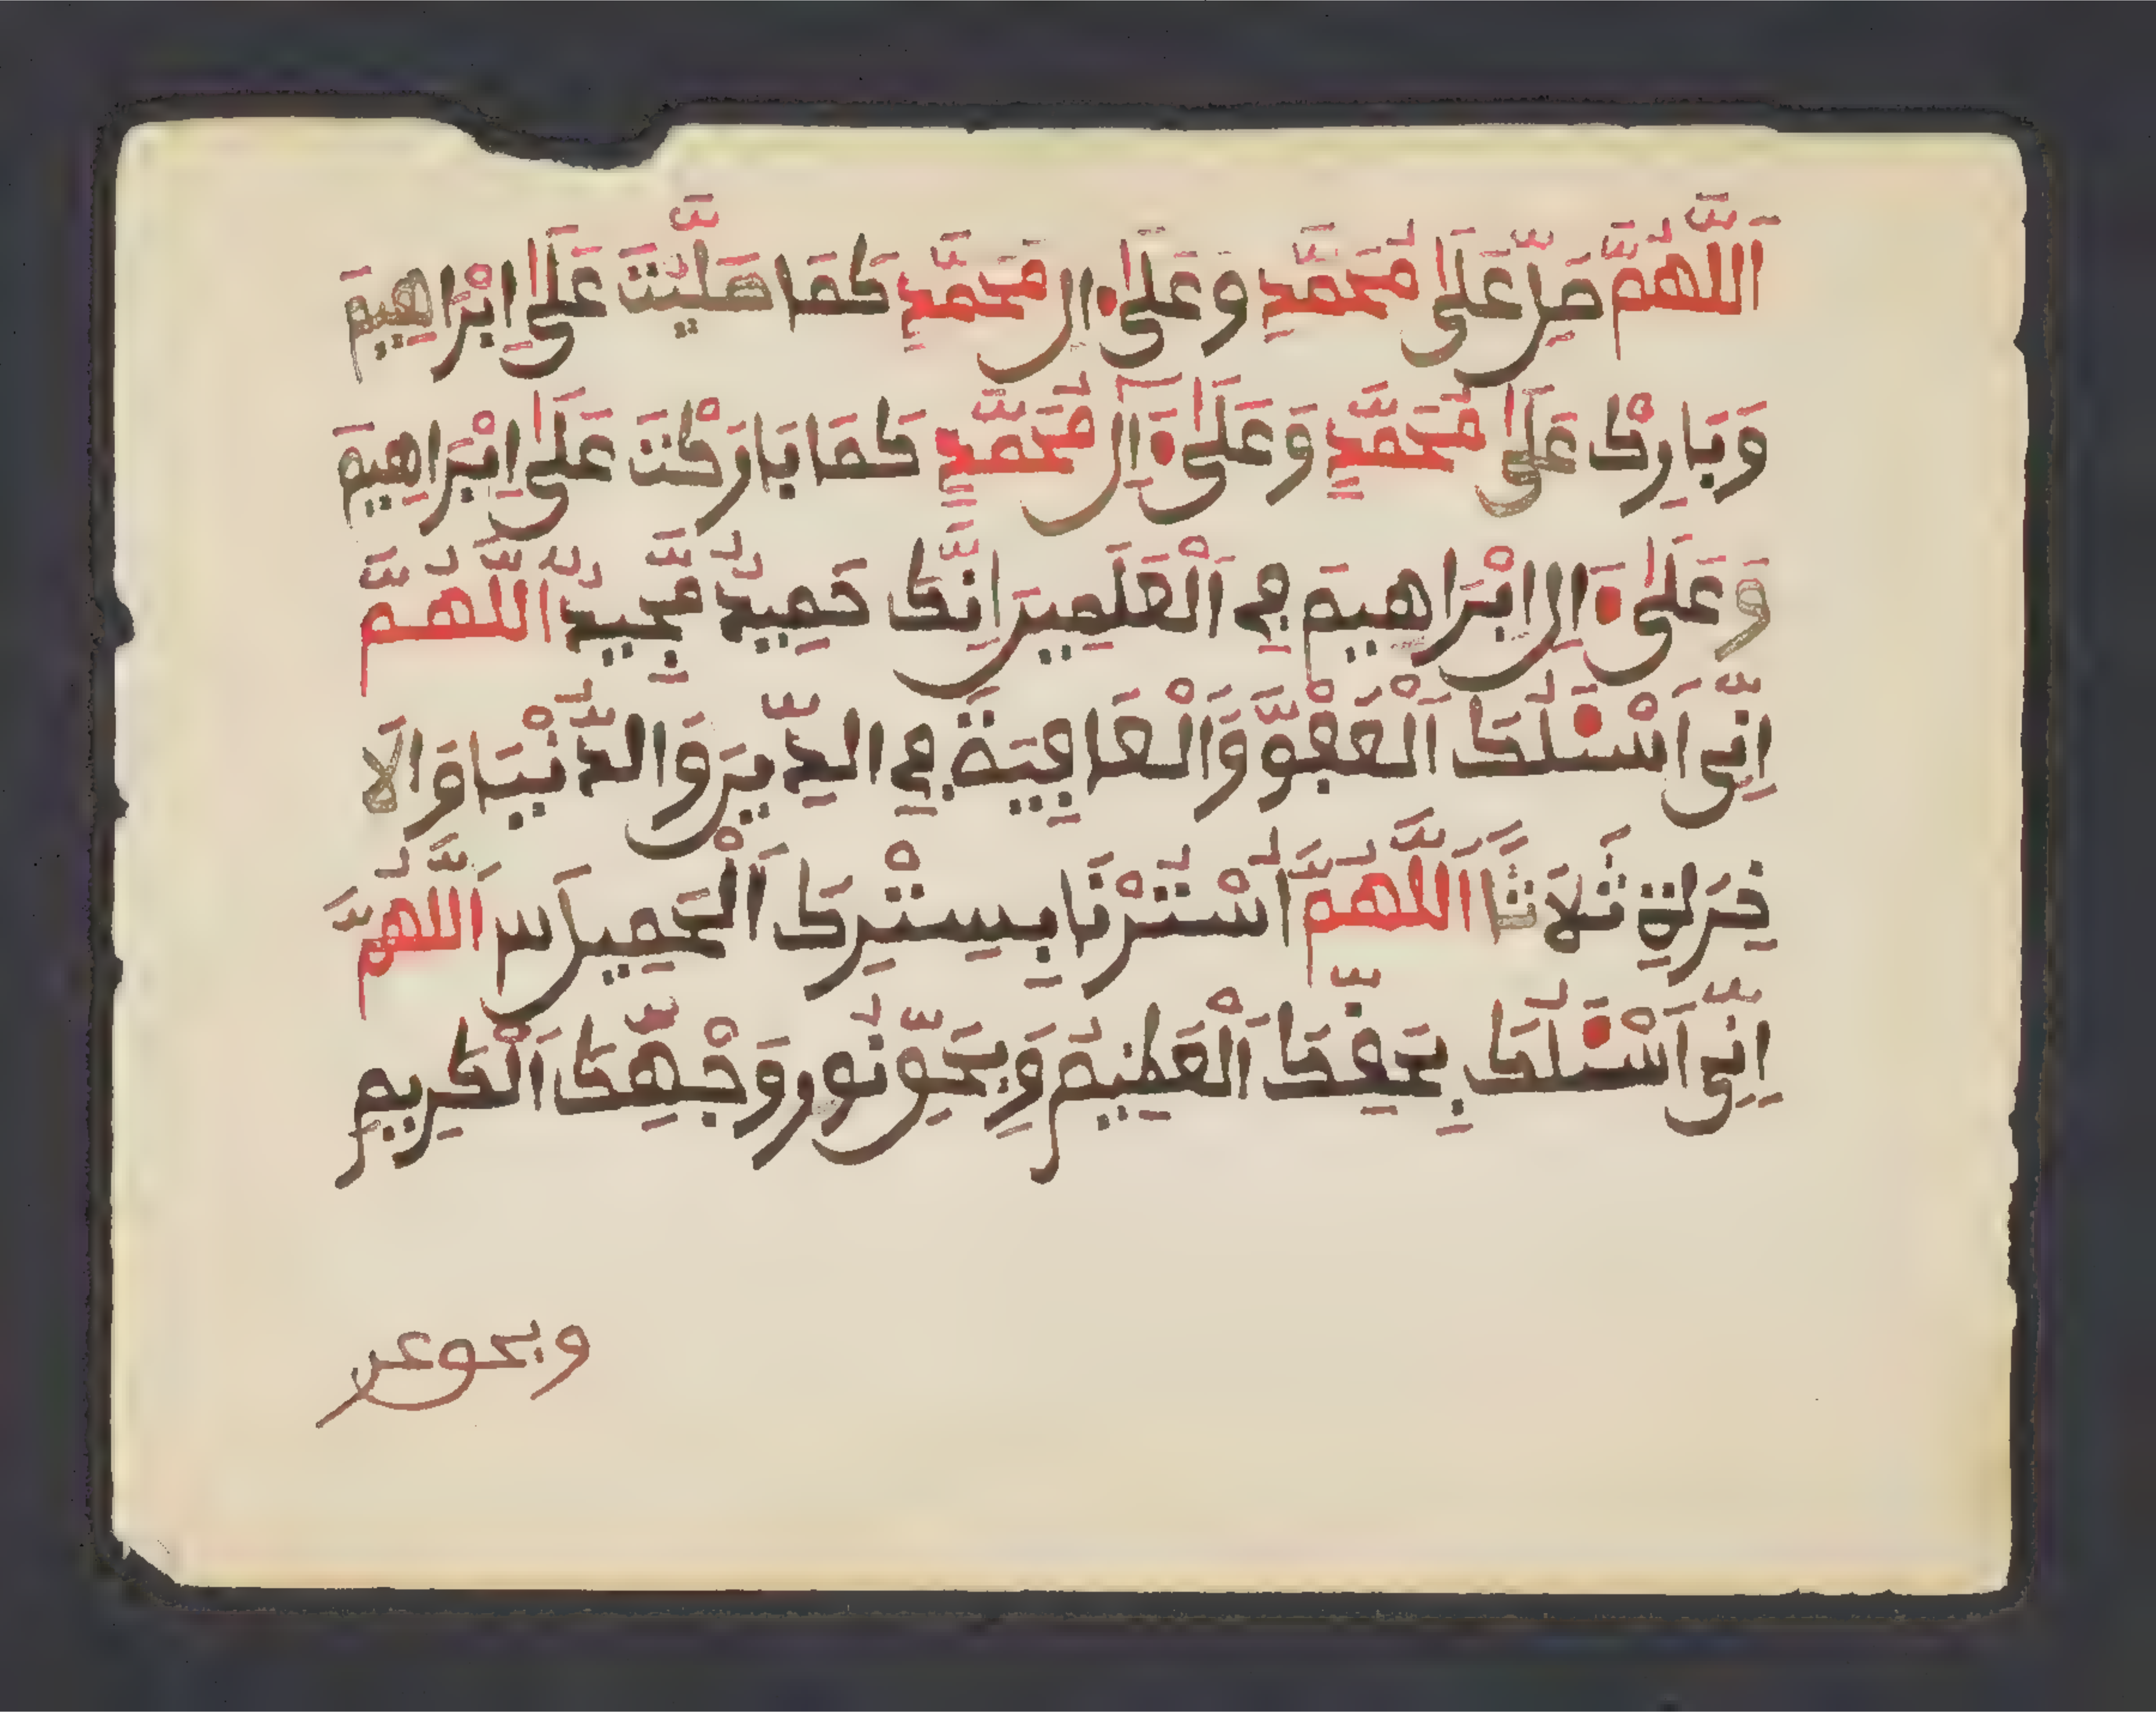 اَللَّهُمَّ صَلِّ عَلَى مُحَمَّدٍ وَعَلَى ءَالِ مُحَمَّدٍ كَمَا صَلَّيْتَ عَلَى اِبْرَاهِيمَ
وَبَارِكْ عَلَى مُحَمَّدٍ وَعَلَى ءَالِ مُحَمَّدٍ كَمَا بَارَكْتَ عَلَى اِبْرَاهِيمَ
وَعَلَى ءَالِ اِبْرَاهِيمَ فِي اَلْعَلَمِينَ اِنَّكَ حَمِيدٌ مَّجِيدٌ اَللَّهُمَّ
اِنِّي اَسْـَٔلُكَ اَلْعَفْوَّ وَالْعَافِيَةَ فِي الدِّينِ وَالدُّنْيَا وَالَا
خِرَةِ ثَلَاثًا اَللَّهُمَّ اُسْتُرْنَا بِسِتْرِكَ اَلْحَمِيلَ س اَللَّهُمَّ
اِنِّي اَسْـَٔلُكَ بِحَقِّكَ اَلْعَظِيمُ وَبِحَقِّ نُورِ وَجْهِكَ اَلْكَرِيمِ
وبحق عر